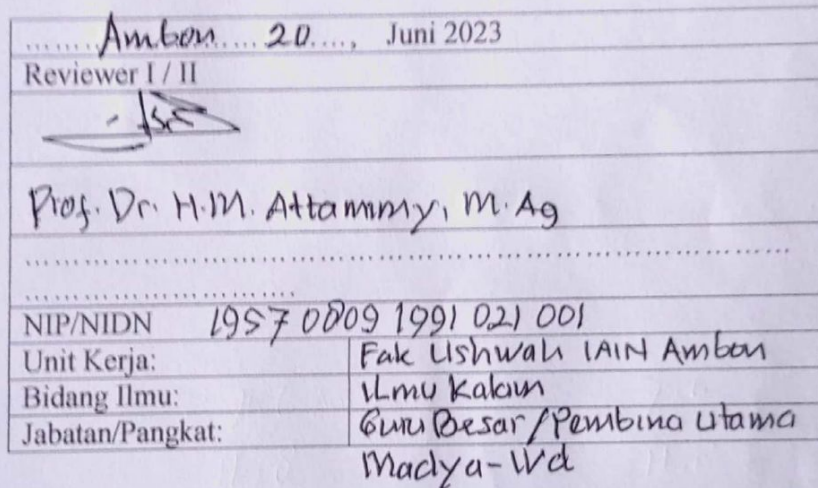 ........Ambon.....20...., Juni 2023
Reviewer I / II
Prof. Dr. H.M. Attamimy, M.Ag
NIP/NIDN 19570809 1991 021 001
Unit Kerja: Fak Ushwah IAIN Ambon
Bidang Ilmu: Ilmu Kalam
Jabatan/Pangkat: Guru Besar/Pembina Utama
Madya-IVd